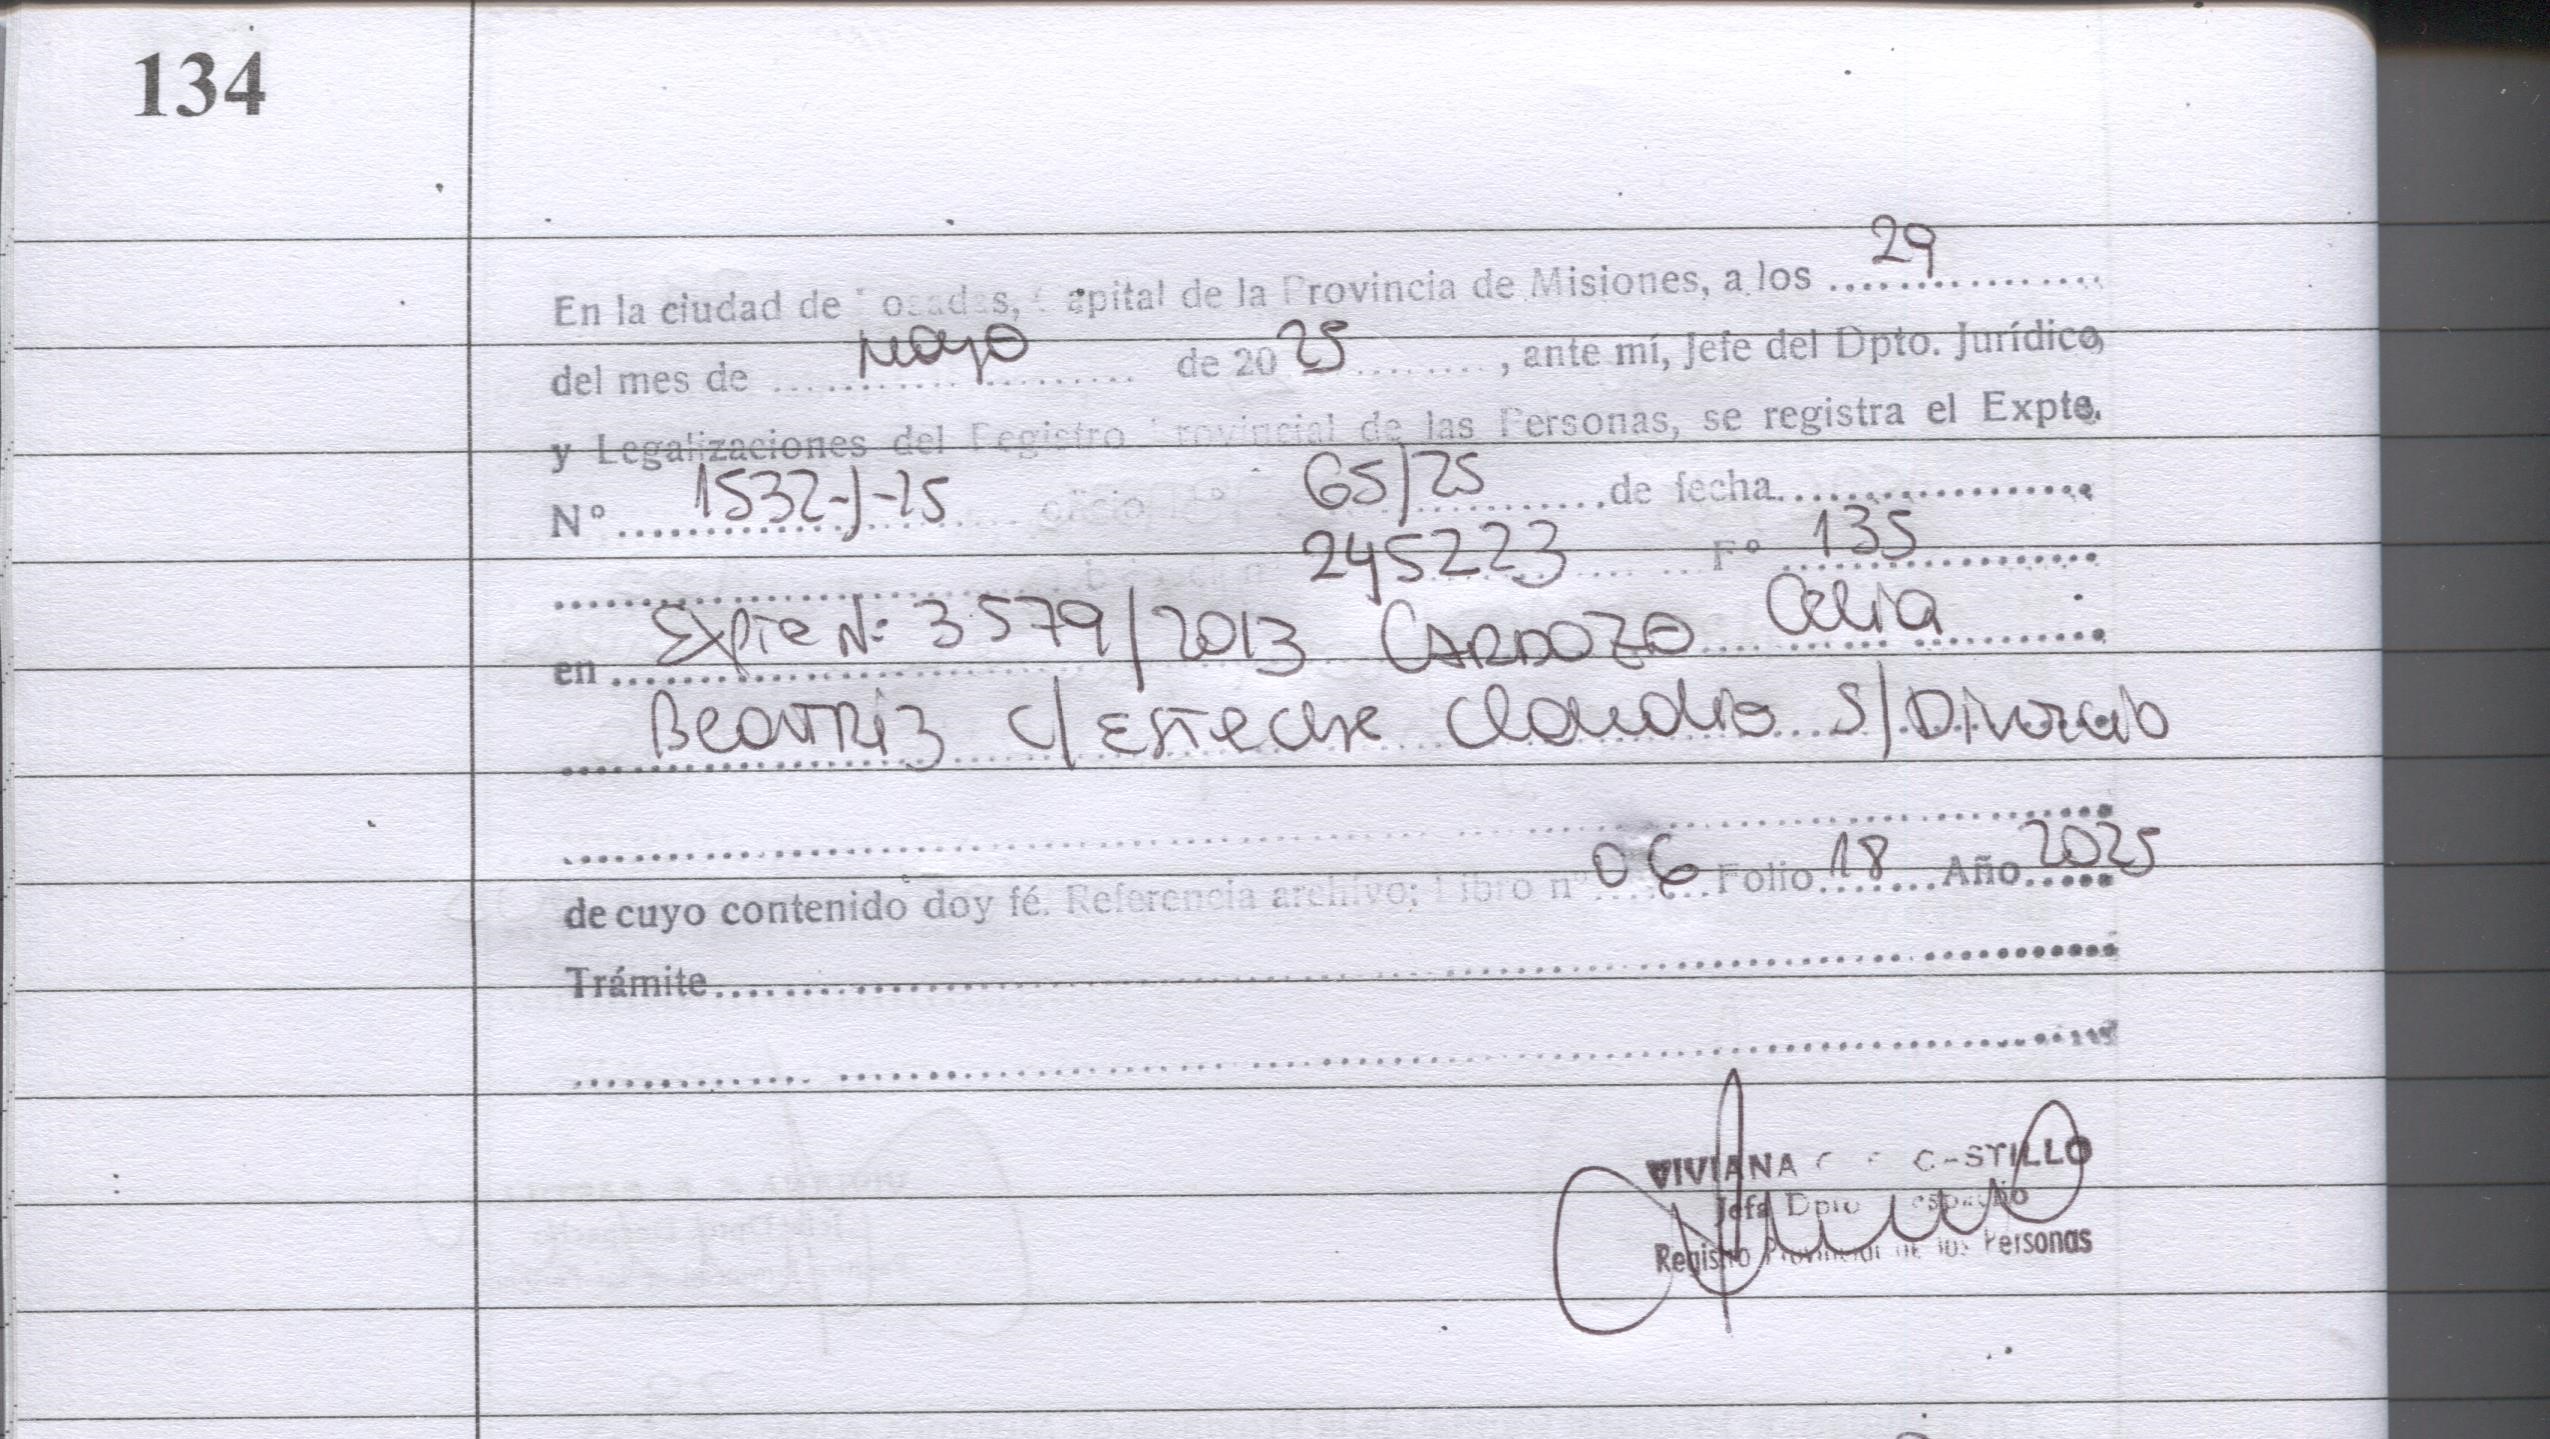 134
En la ciudad de Posadas, Capital de la Provincia de Misiones, a los 29
del mes de mayo de 2025, ante mí, Jefe del Dpto. Jurídico,
y Legalizaciones del Registro Provincial de las Personas, se registra el Expte.
N° 1532-J-25 oficio N° 65/25 de fecha
245223 F° 135
en Expte N: 3579/2013 CARDOZO Celia
BeatRiz c/ Esteche Claudio S/ Divorcio
de cuyo contenido doy fé. Referencia archivo: Libro n° 06 Folio 18 Año 2025
Trámite
VIVIANA CASTILLO
Jefa Dpto Despacho
Registro Provincial de las Personas